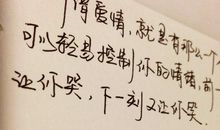 谓爱情,就是有那么一个人
可以轻易控制你的情绪,前一
让你哭,下一刻又让你笑.